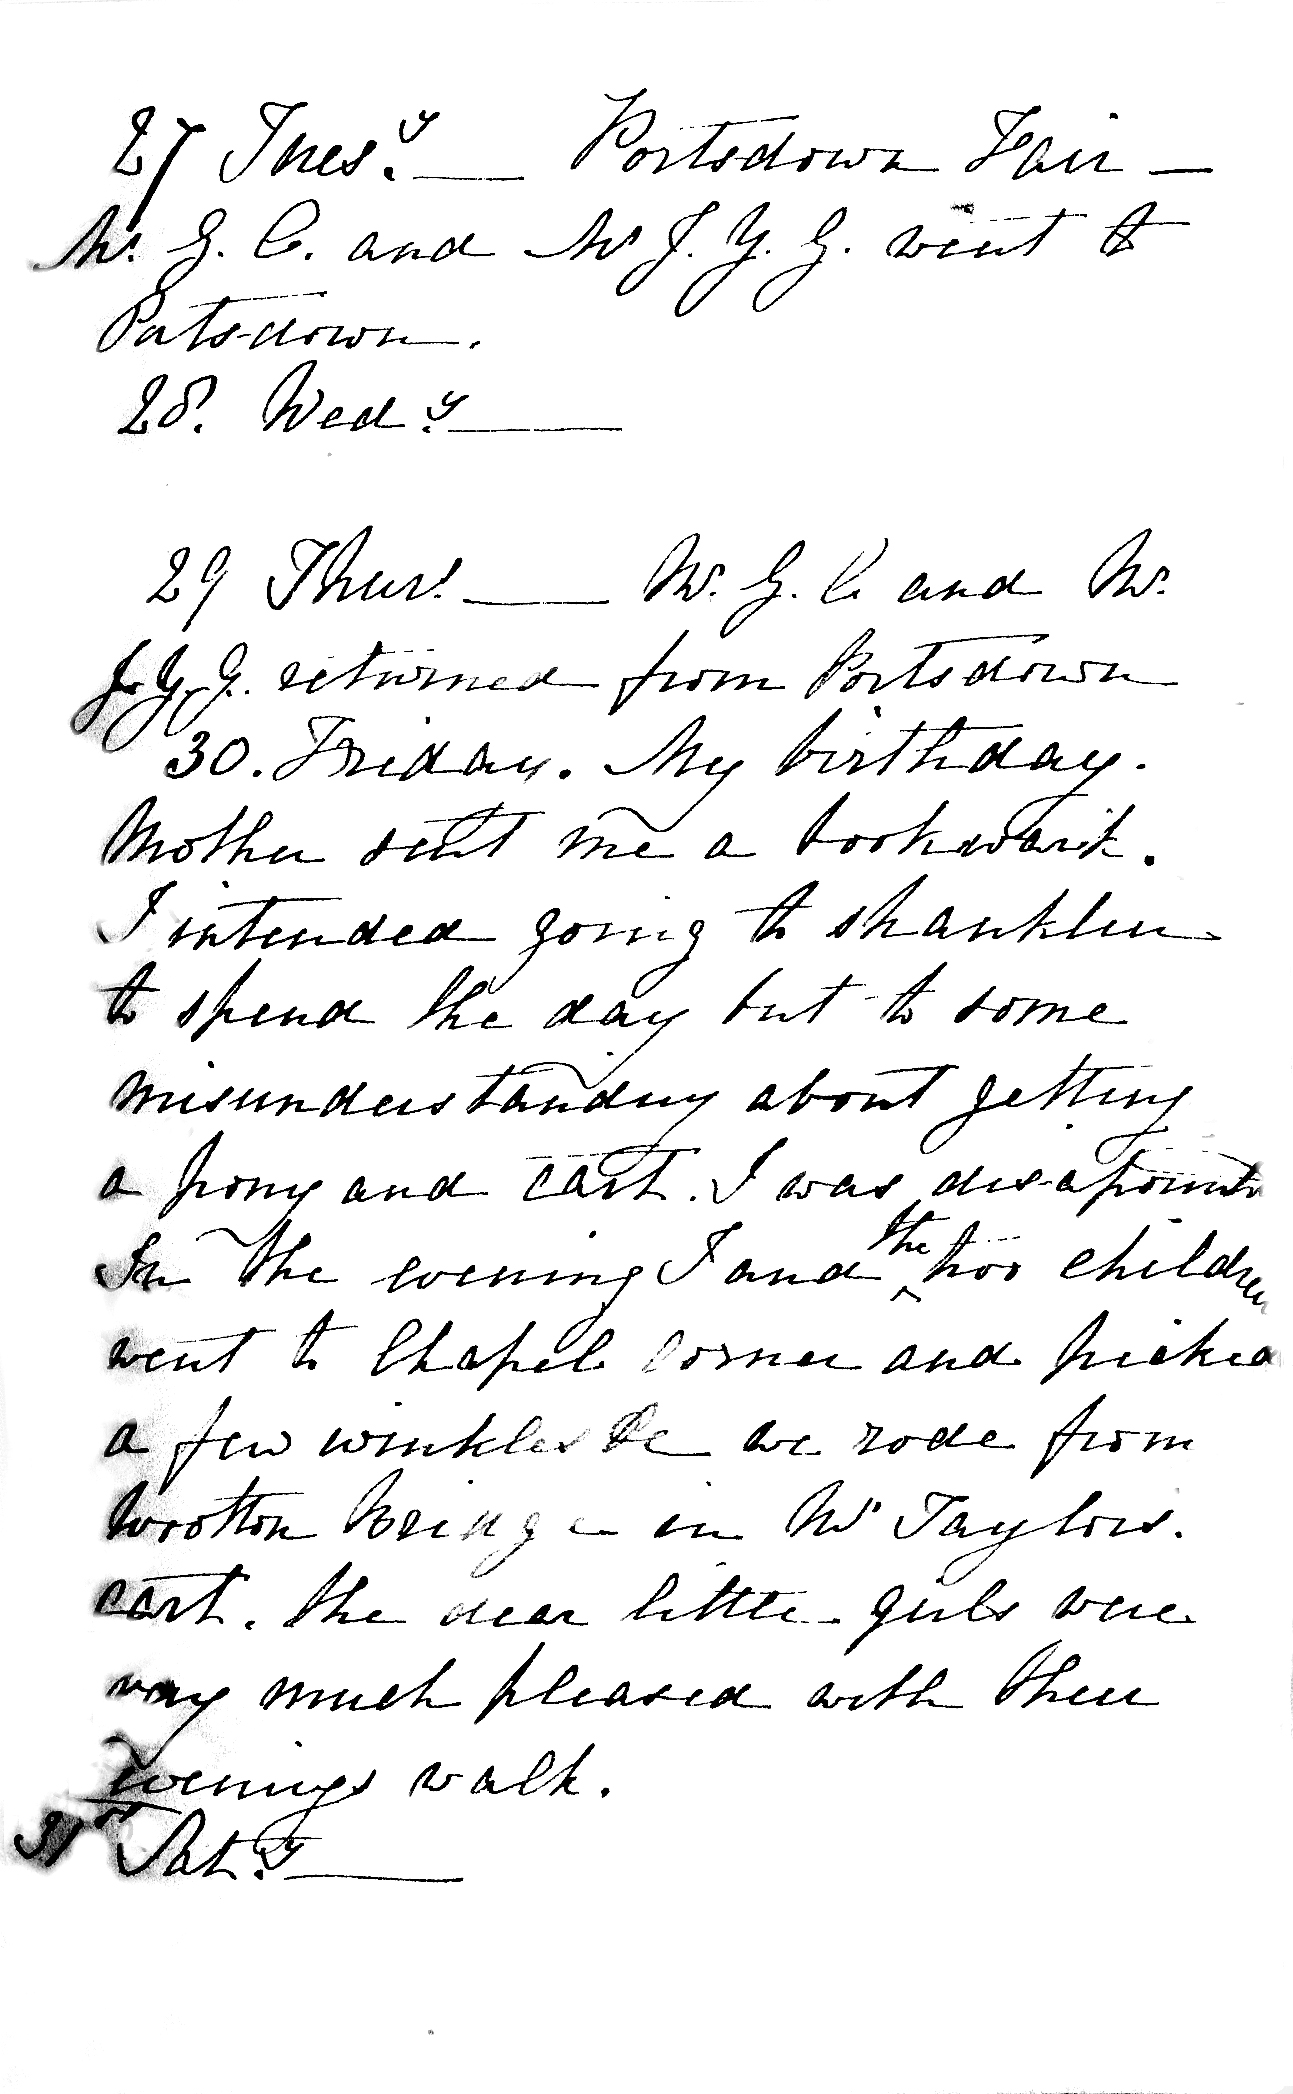 27 Tues.y — Portsdown Fair —
Mr. G. C. and Mr J. Y. G. went to
Portsdown.
28. Wed.y —
29 Thurs. — Mr. G. C and Mr.
J. Y. G. returned from Portsdown
30. Friday. My birthday.
Mother sent me a bookmark.
I intended going to Shanklin
to spend the day but to some
misunderstanding about getting
a pony and cart. I was disapointe
In the evening I and the two children
went to Chapel Corner and picked
a few winkles &c we rode from
Wootton Bridge in Mr Taylors.
cart. the dear little girls were
very much pleased with their
evenings walk.
31st Sat.y —